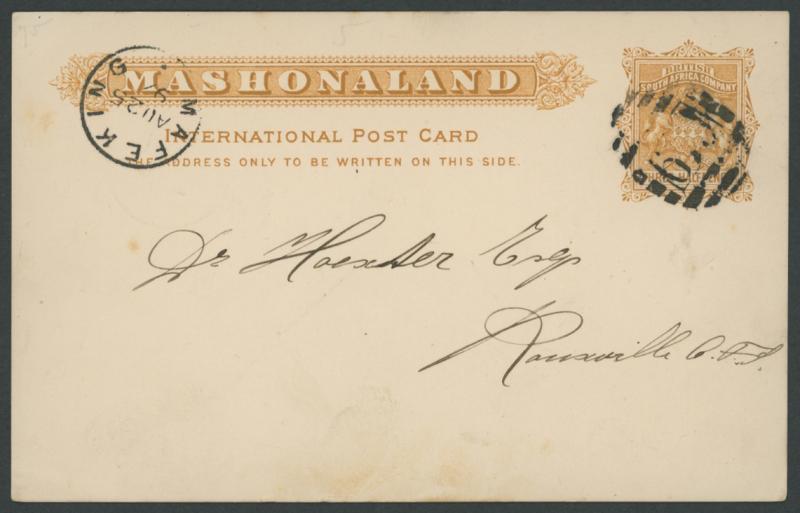 MASHONALAND
INTERNATIONAL POST CARD
THE ADDRESS ONLY TO BE WRITTEN ON THIS SIDE.
BRITISH
SOUTH AFRICA COMPANY
MAFEKING
AU 25
Dr Hoexter Esqr
Rouxville O.F.S.